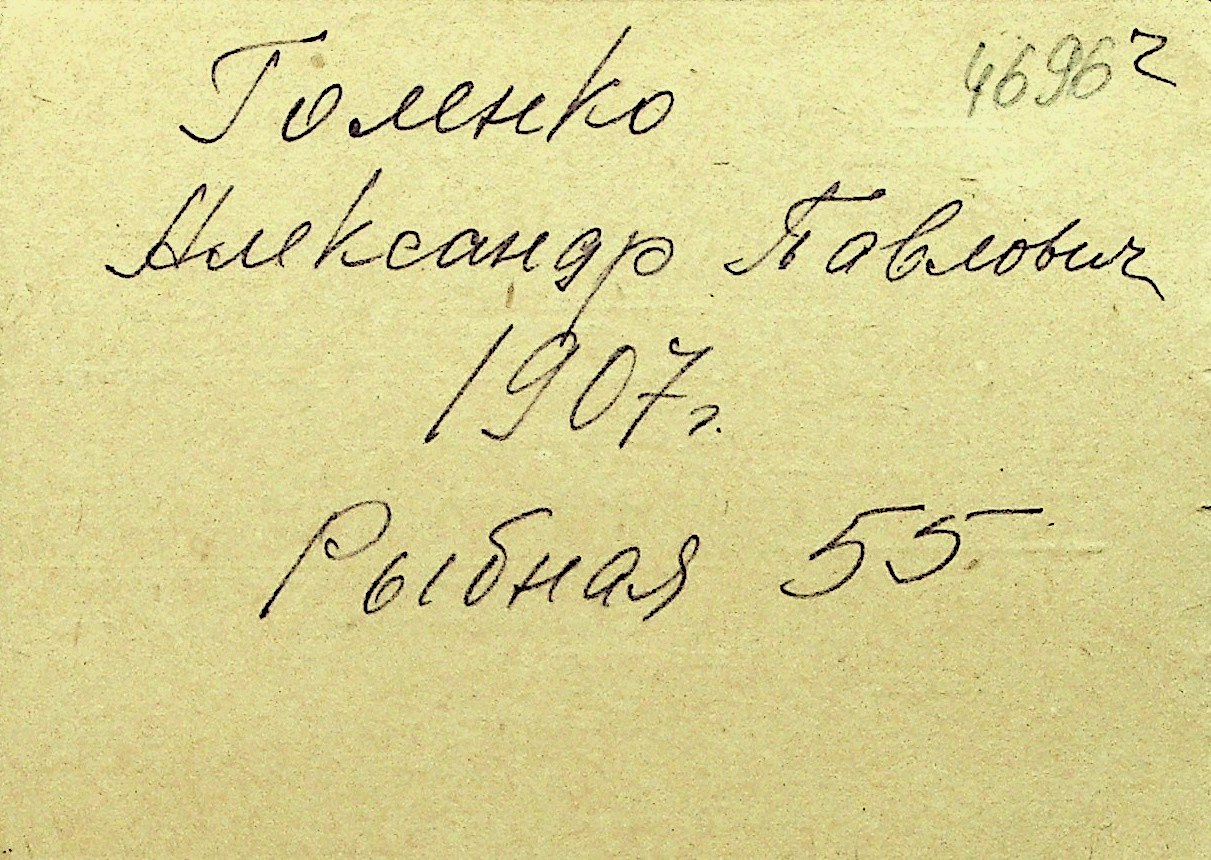 4696 ч
Голенко
Александр Павлович
1907 г.
Рыбная 55